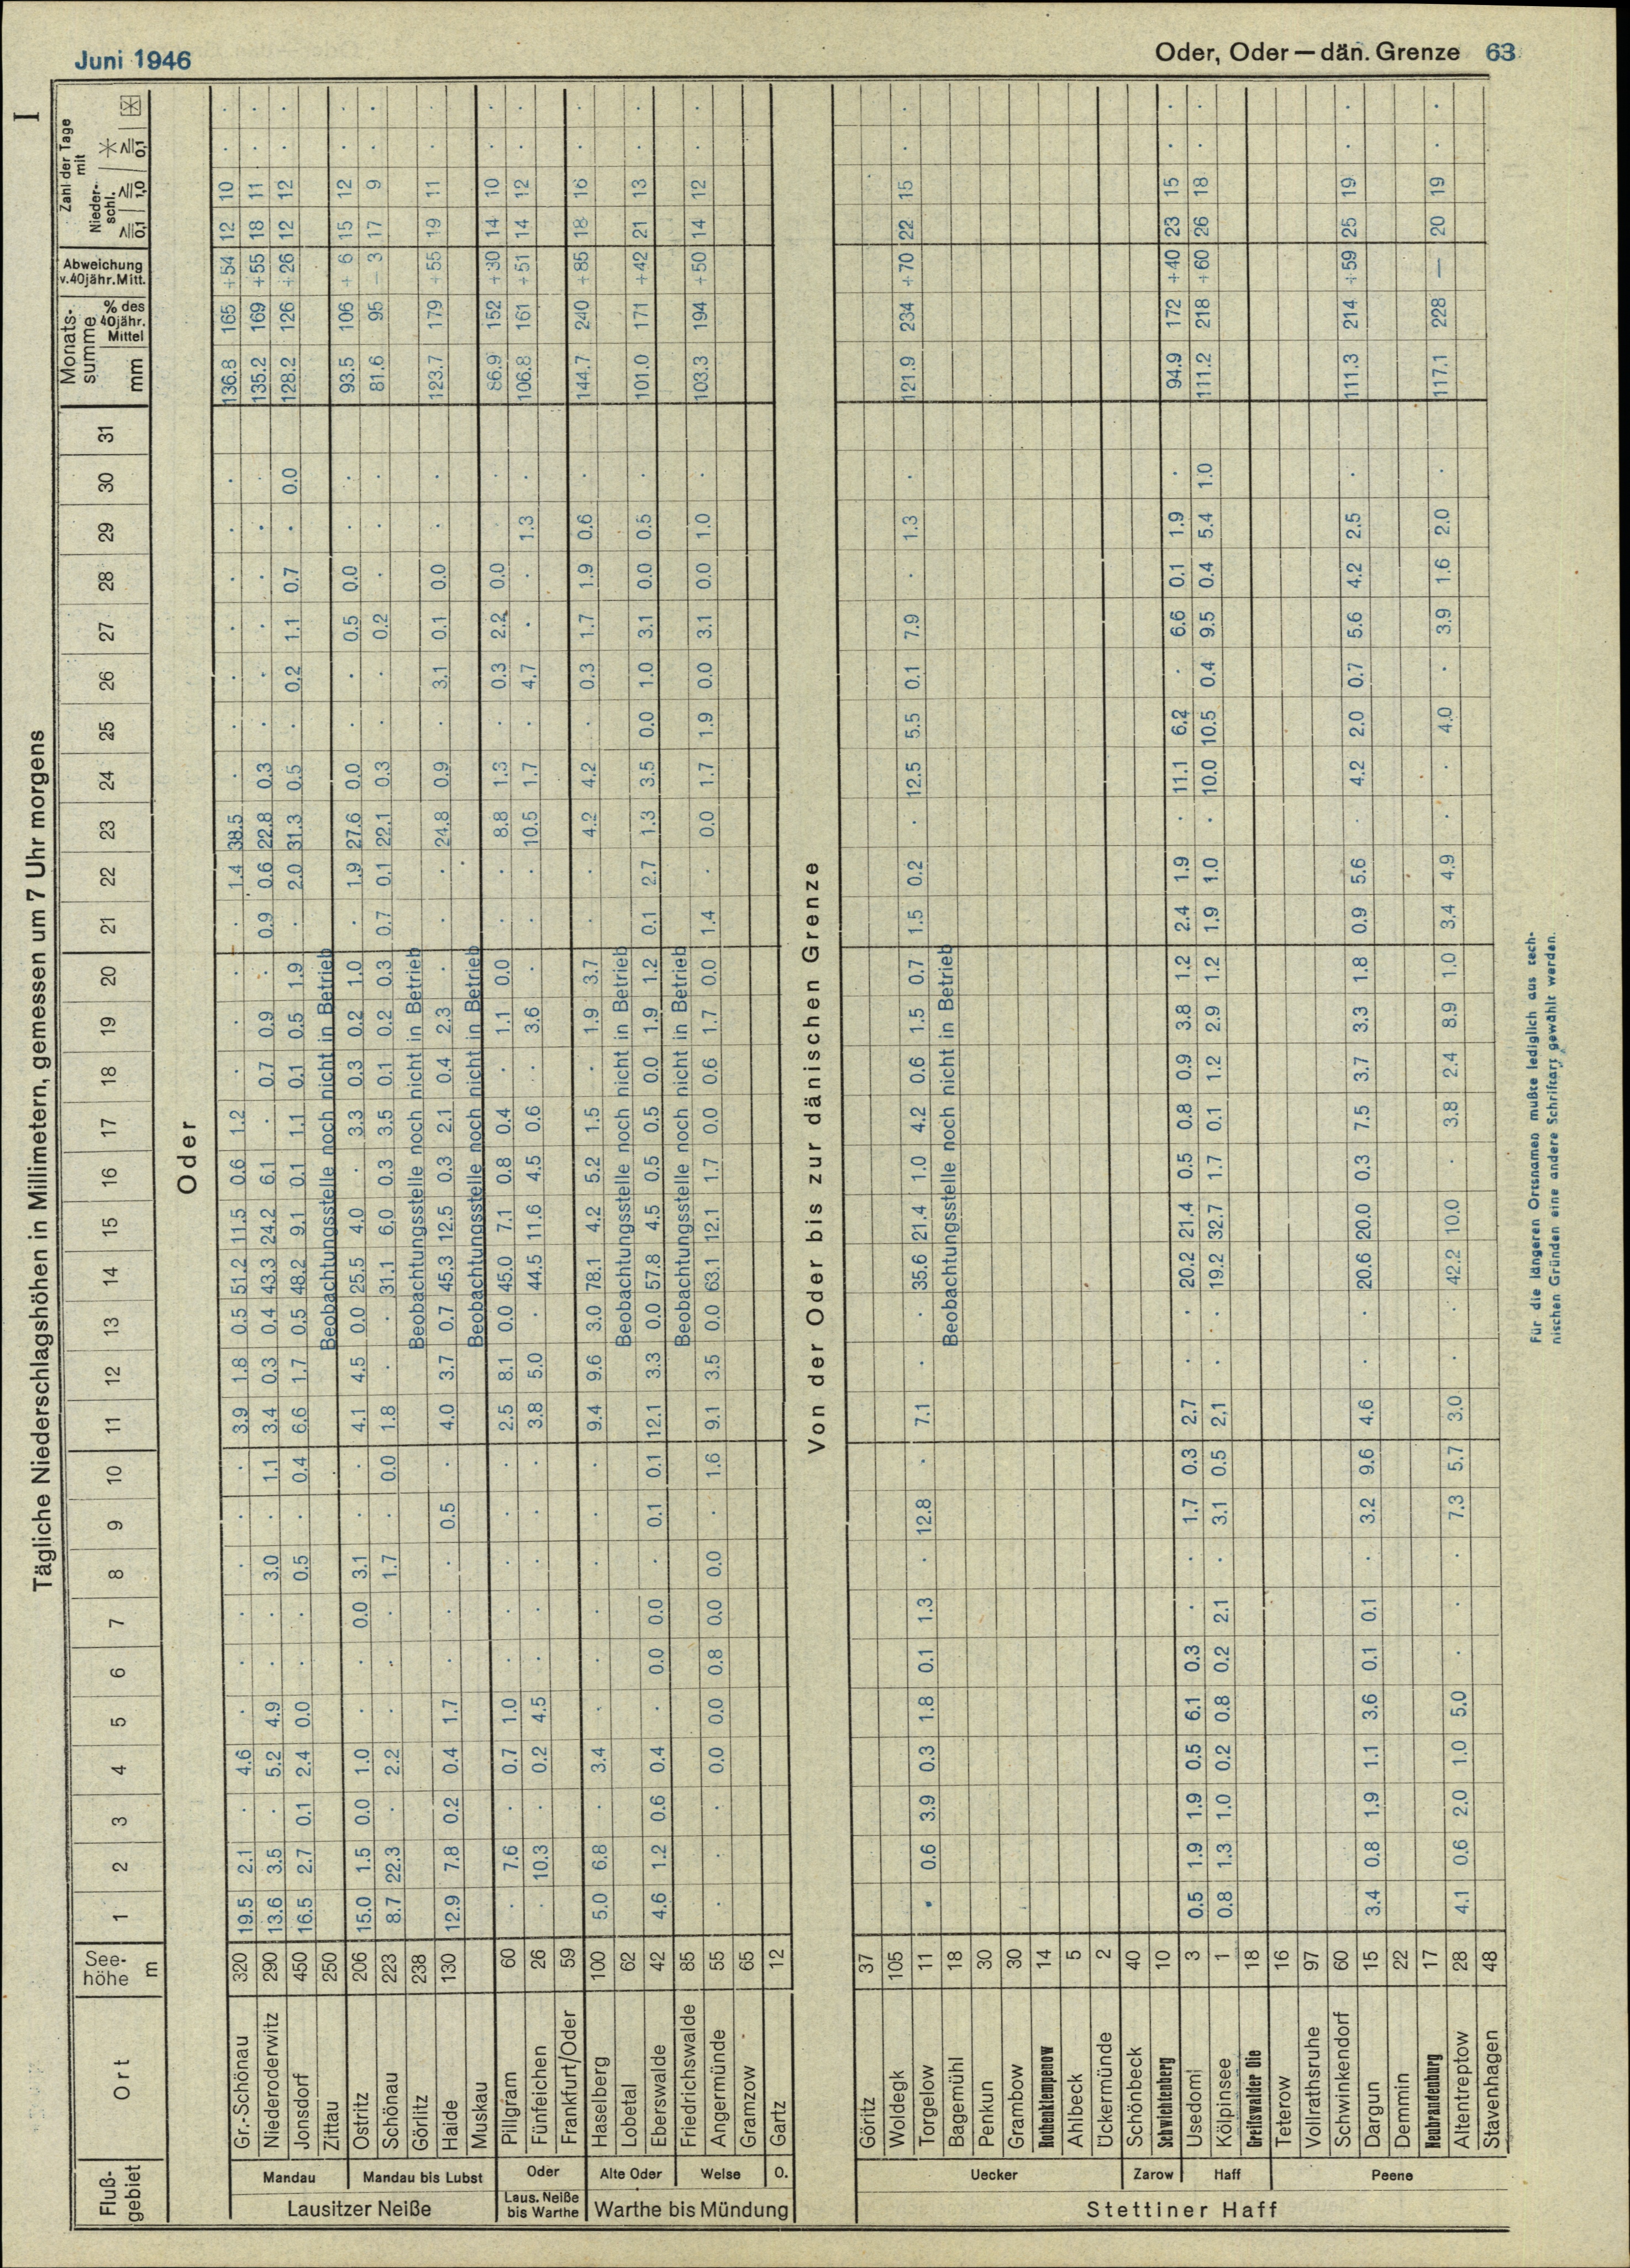 Juni 1946
Oder, Oder — dän. Grenze 63
I
Tägliche Niederschlagshöhen in Millimetern, gemessen um 7 Uhr morgens
Fluß-gebiet Ort See-höhe m 1 2 3 4 5 6 7 8 9 10 11 12 13 14 15 16 17 18 19 20 21 22 23 24 25 26 27 28 29 30 31 Monats-summe mm % des 40jähr. Mittel Abweichung v. 40jähr. Mitt. Zahl der Tage mit Nieder-schl. ≥0,1 ≥1,0 ✳ ≥0,1
Oder
Lausitzer Neiße
Mandau
Gr.-Schönau 320 19.5 2.1 . 4.6 . . . . . . 3.9 1.8 0.5 51.2 11.5 0.6 1.2 . . . . 1.4 38.5 . . . . . . . 136.8 165 +54 12 10 . .
Niederoderwitz 290 13.6 3.5 . 5.2 4.9 . . 3.0 . 1.1 3.4 0.3 0.4 43.3 24.2 6.1 . 0.7 0.9 . 0.9 0.6 22.8 0.3 . . . . . . 135.2 169 +55 18 11 . .
Jonsdorf 450 16.5 2.7 0.1 2.4 0.0 . . 0.5 . 0.4 6.6 1.7 0.5 48.2 9.1 0.1 1.1 0.1 0.5 1.9 . 2.0 31.3 0.5 . 0.2 1.1 0.7 . 0.0 128.2 126 +26 12 12 . .
Zittau 250 Beobachtungsstelle noch nicht in Betrieb
Mandau bis Lubst
Ostritz 206 15.0 1.5 0.0 1.0 . . 0.0 3.1 . . 4.1 4.5 0.0 25.5 4.0 . 3.3 0.3 0.2 1.0 . 1.9 27.6 0.0 . . 0.5 0.0 . . 93.5 106 + 6 15 12 . .
Schönau 223 8.7 22.3 . 2.2 . . . 1.7 . 0.0 1.8 . . 31.1 6.0 0.3 3.5 0.1 0.2 0.3 0.7 0.1 22.1 0.3 . . 0.2 . . . 81.6 95 − 3 17 9 . .
Görlitz 238 Beobachtungsstelle noch nicht in Betrieb
Haide 130 12.9 7.8 0.2 0.4 1.7 . . . 0.5 . 4.0 3.7 0.7 45.3 12.5 0.3 2.1 0.4 2.3 . . . 24.8 0.9 . 3.1 0.1 0.0 . . 123.7 179 +55 19 11 . .
Muskau Beobachtungsstelle noch nicht in Betrieb
Laus. Neiße bis Warthe
Oder
Pillgram 60 . 7.6 . 0.7 1.0 . . . . . 2.5 8.1 0.0 45.0 7.1 0.8 0.4 . 1.1 0.0 . . 8.8 1.3 . 0.3 2.2 0.0 . 86.9 152 +30 14 10 . .
Fünfeichen 26 . 10.3 . 0.2 4.5 . . . . . 3.8 5.0 . 44.5 11.6 4.5 0.6 . 3.6 . . . 10.5 1.7 . 4.7 . . 1.3 . 106.8 161 +51 14 12 . .
Frankfurt/Oder 59
Warthe bis Mündung
Alte Oder
Haselberg 100 5.0 6.8 . 3.4 . . . . . . 9.4 9.6 3.0 78.1 4.2 5.2 1.5 . 1.9 3.7 . . 4.2 4.2 . 0.3 1.7 1.9 0.6 . 144.7 240 +85 18 16 . .
Lobetal 62 Beobachtungsstelle noch nicht in Betrieb
Eberswalde 42 4.6 1.2 0.6 0.4 . 0.0 0.0 . 0.1 0.1 12.1 3.3 0.0 57.8 4.5 0.5 0.5 0.0 1.9 1.2 0.1 2.7 1.3 3.5 0.0 1.0 3.1 0.0 0.5 . 101.0 171 +42 21 13 . .
Welse
Friedrichswalde 85 Beobachtungsstelle noch nicht in Betrieb
Angermünde 55 . . . 0.0 0.0 0.8 0.0 0.0 . 1.6 9.1 3.5 0.0 63.1 12.1 1.7 0.0 0.6 1.7 0.0 1.4 . 0.0 1.7 1.9 0.0 3.1 0.0 1.0 . 103.3 194 +50 14 12 . .
Gramzow 65
O.
Gartz 12
Von der Oder bis zur dänischen Grenze
Stettiner Haff
Uecker
Göritz 37
Woldegk 105
Torgelow 11 . 0.6 3.9 0.3 1.8 0.1 1.3 . 12.8 . 7.1 . . 35.6 21.4 1.0 4.2 0.6 1.5 0.7 1.5 0.2 . 12.5 5.5 0.1 7.9 . 1.3 . 121.9 234 +70 22 15 . .
Bagemühl 18 Beobachtungsstelle noch nicht in Betrieb
Penkun 30
Grambow 30
Rothenklempenow 14
Ahlbeck 5
Ückermünde 2
Zarow
Schönbeck 40
Schwichtenberg 10
Haff
Usedom 3 0.5 1.9 1.9 0.5 6.1 0.3 . . 1.7 0.3 2.7 . . 20.2 21.4 0.5 0.8 0.9 3.8 1.2 2.4 1.9 . 11.1 6.2 . 6.6 0.1 1.9 . 94.9 172 +40 23 15 . .
Kölpinsee 1 0.8 1.3 1.0 0.2 0.8 0.2 2.1 . 3.1 0.5 2.1 . . 19.2 32.7 1.7 0.1 1.2 2.9 1.2 1.9 1.0 . 10.0 10.5 0.4 9.5 0.4 5.4 1.0 111.2 218 +60 26 18 . .
Greifswalder Oie 18
Peene
Teterow 16
Vollrathsruhe 97
Schwinkendorf 60
Dargun 15 3.4 0.8 1.9 1.1 3.6 0.1 0.1 . 3.2 9.6 4.6 . . 20.6 20.0 0.3 7.5 3.7 3.3 1.8 0.9 5.6 . 4.2 2.0 0.7 5.6 4.2 2.5 . 111.3 214 +59 25 19 . .
Demmin 22
Neubrandenburg 17
Altentreptow 28 4.1 0.6 2.0 1.0 5.0 . . . 7.3 5.7 3.0 . . 42.2 10.0 . 3.8 2.4 8.9 1.0 3.4 4.9 . . 4.0 . 3.9 1.6 2.0 . 117.1 228 — 20 19 . .
Stavenhagen 48
Für die längeren Ortsnamen mußte lediglich aus tech-
nischen Gründen eine andere Schriftart gewählt werden.